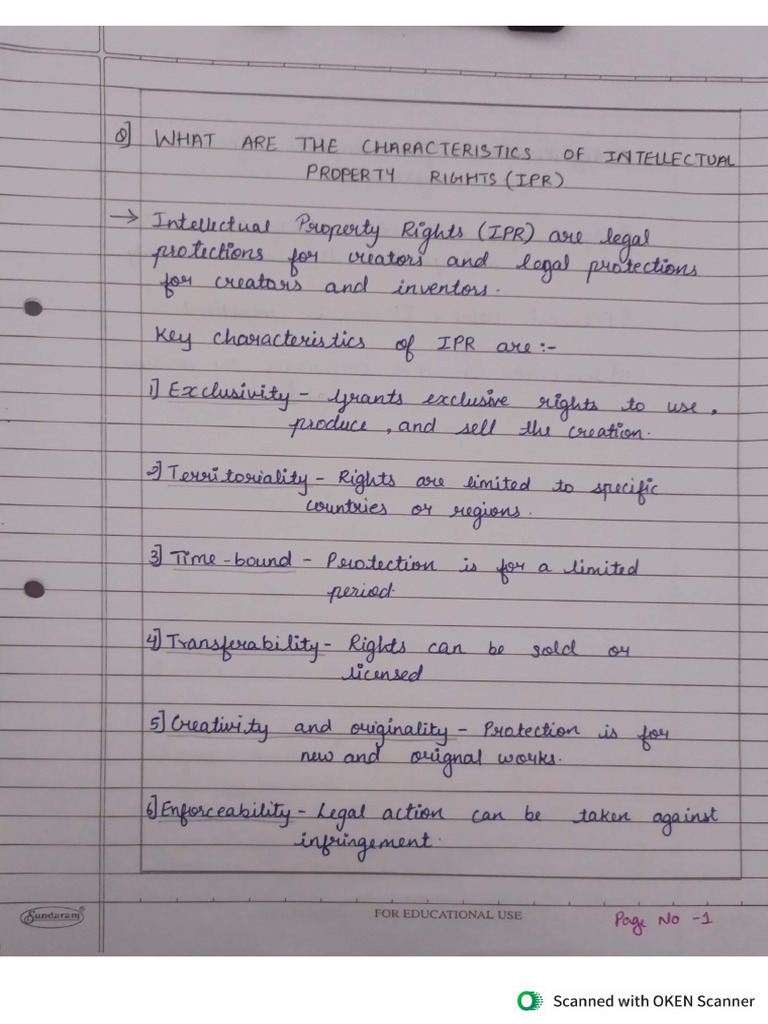 Q] WHAT ARE THE CHARACTERISTICS OF INTELLECTUAL
PROPERTY RIGHTS (IPR)
→ Intellectual Property Rights (IPR) are legal
protections for creators and legal protections
for creators and inventors.
Key characteristics of IPR are:-
1] Exclusivity - Grants exclusive rights to use,
produce, and sell the creation.
2] Territoriality - Rights are limited to specific
countries or regions.
3] Time-bound - Protection is for a limited
period.
4] Transferability - Rights can be sold or
licensed
5] Creativity and originality - Protection is for
new and orignal works.
6] Enforceability - Legal action can be taken against
infringement.
Sundaram
FOR EDUCATIONAL USE
Page No -1
Scanned with OKEN Scanner